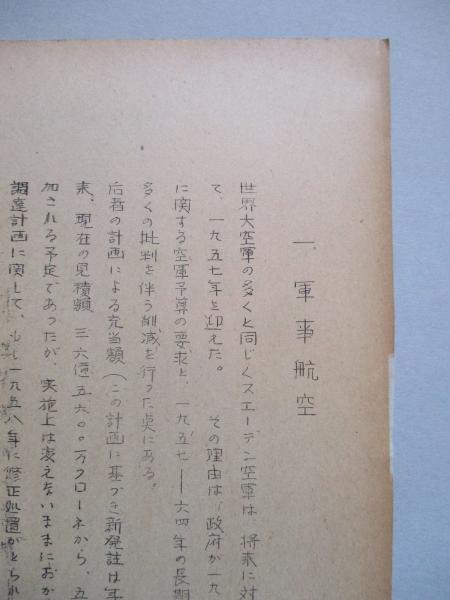 一、軍事航空
世界大空軍の多くと同じくスエーデン空軍は 将来に対
て、一九五七年を迎えた。 その理由は、政府が一九
に関する空軍予算の要求と、一九五七——六四年の長期
多くの批判を伴う削減を行った点にある。
后者の計画による充当額(この計画に基づき新発註は年
来、現在の見積額 三六億五六〇〇万クローネから、五
加される予定であったが、実施上は変えないままにおか
調達計画に関して、もし一九五八年に修正処置がとられ